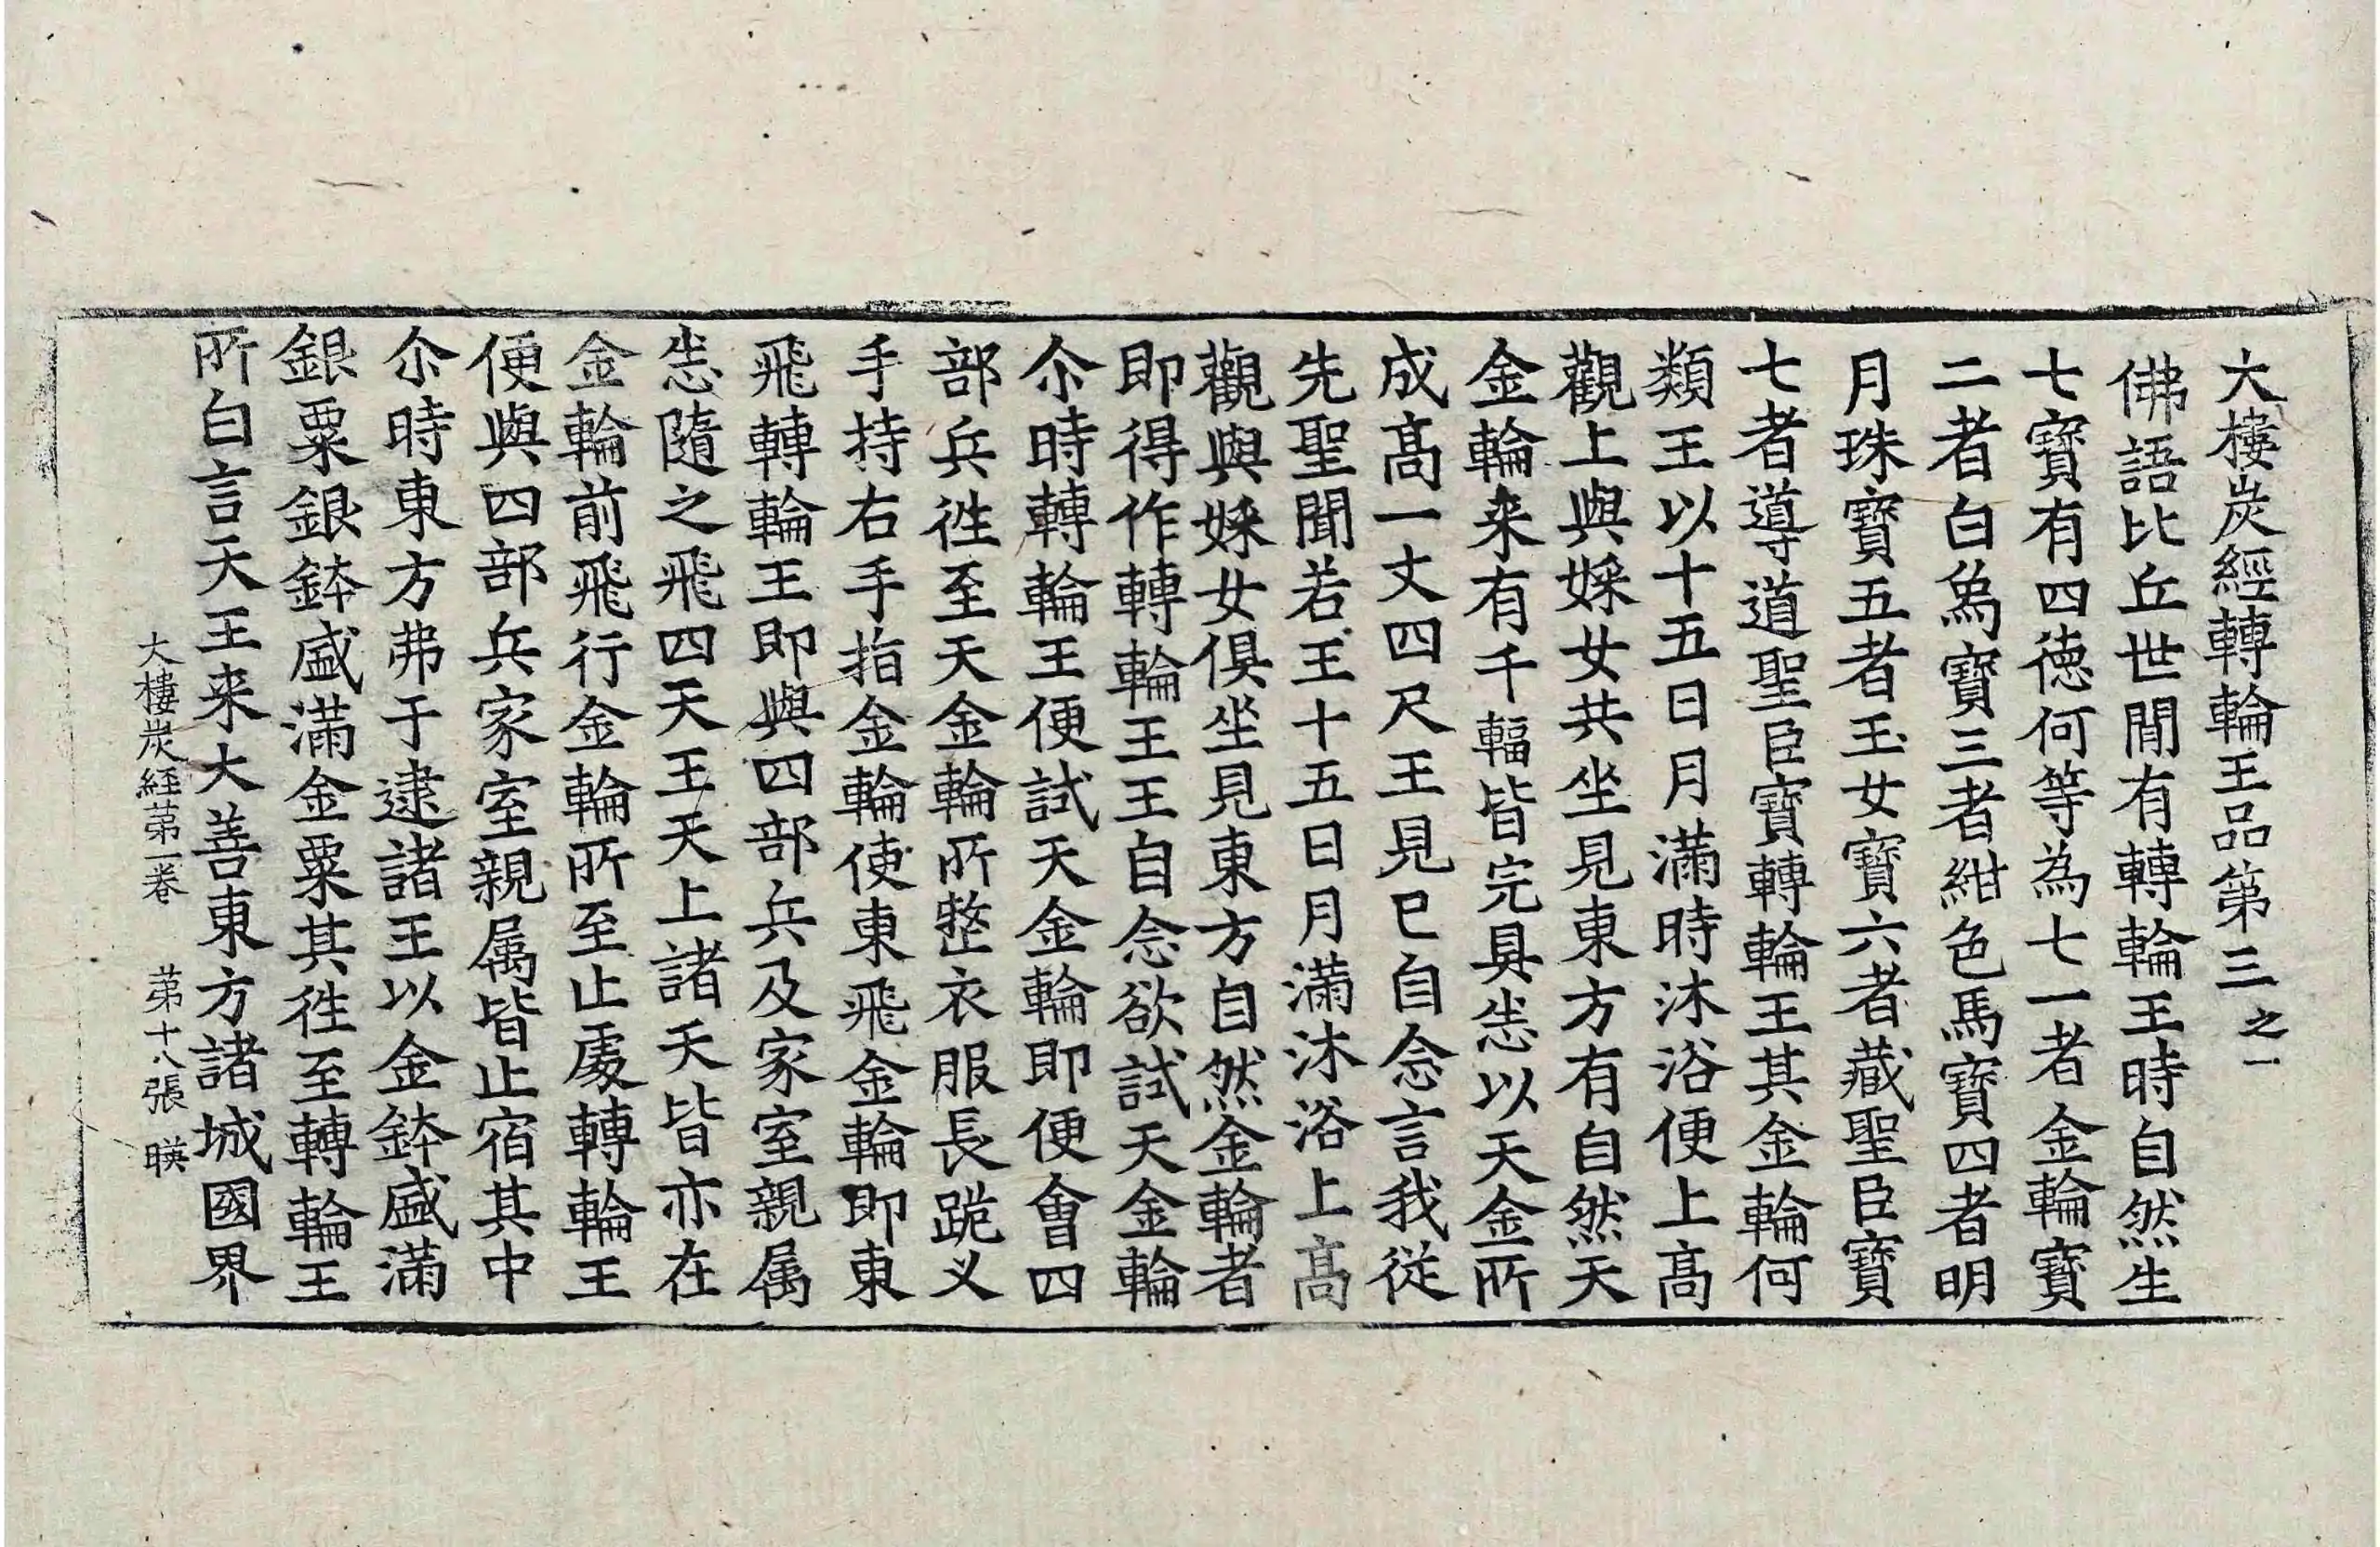 大樓炭經轉輪王品第三之一
佛語比丘世間有轉輪王時自然生
七寶有四徳何等為七一者金輪寶
二者白象寶三者紺色馬寶四者明
月珠寶五者玉女寶六者藏聖臣寶
七者導道聖臣寶轉輪王其金輪何
類王以十五日月滿時沐浴便上髙
觀上與婇女共坐見東方有自然天
金輪来有千輻皆完具悉以天金所
成髙一丈四尺王見已自念言我從
先聖聞若王十五日月滿沐浴上髙
觀與婇女俱坐見東方自然金輪者
即得作轉輪王王自念欲試天金輪
尒時轉輪王便試天金輪即便會四
部兵徃至天金輪所整衣服長跪叉
手持右手指金輪使東飛金輪即東
飛轉輪王即與四部兵及家室親属
悉隨之飛四天王天上諸天皆亦在
金輪前飛行金輪所至止處轉輪王
便與四部兵家室親属皆止宿其中
尒時東方弗于逮諸王以金鉢盛滿
銀粟銀鉢盛滿金粟其徃至轉輪王
所白言天王来大善東方諸城國界
大樓炭経苐一卷 苐十八張 暎